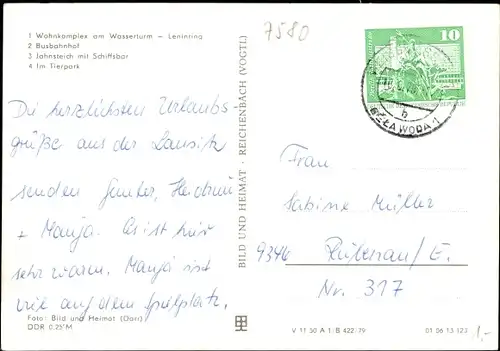 1 Wohnkomplex am Wasserturm – Leninring
2 Busbahnhof
3 Jahnsteich mit Schiffsbar
4 Im Tierpark
7580
10
BĚŁA WODA 1
h
Die herzlichsten Urlaubs-
grüße aus der Lausitz
senden Günter, Heidrun
+ Manja. Es ist hier
sehr warm. Manja ist
viel auf dem Spielplatz.
Foto: Bild und Heimat (Darr)
DDR 0.25 M
BILD UND HEIMAT · REICHENBACH (VOGTL)
Frau
Sabine Müller
9346 Rübenau/E.
Nr. 317
V 11 50 A 1/B 422/79
01 06 13 123
1,-